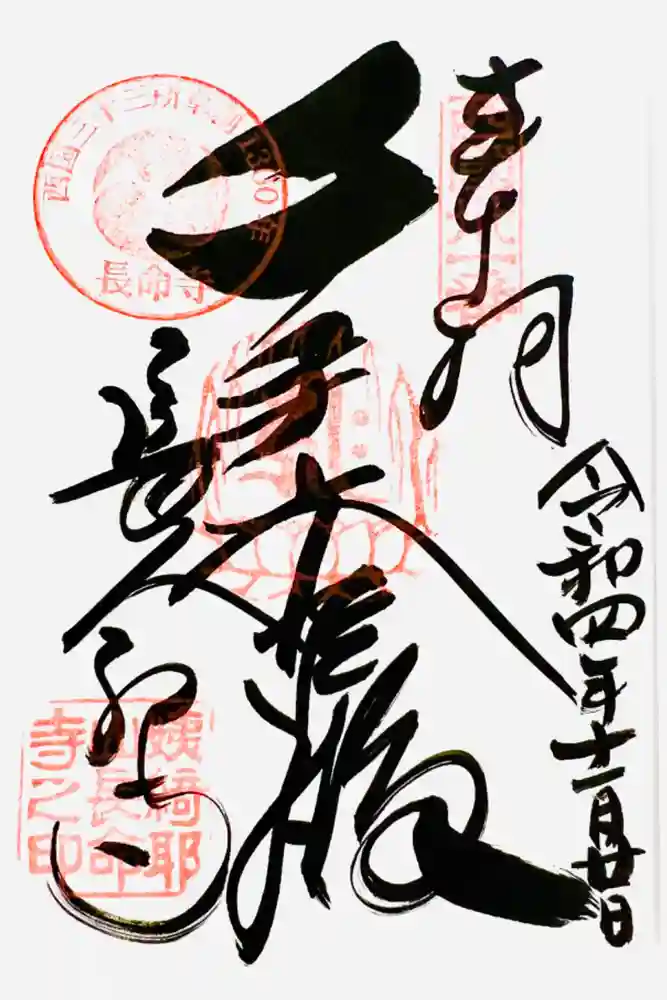 奉拝
令和四年十一月廿日
千手大悲殿
長命寺
西国三十三所草創1300年
長命寺
姨綺耶
山長命
寺之印